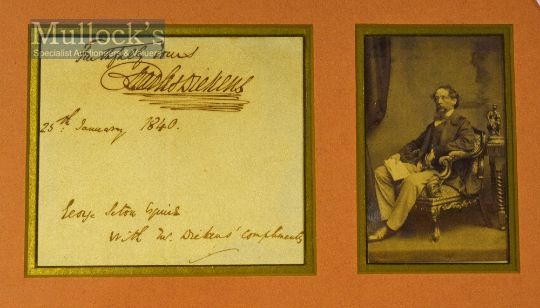 Mullock's
Specialist Auctioneers & Valuers
Yours
Charles Dickens
25th January 1840.
George Seton Esquire
With Mr. Dickens' compliments